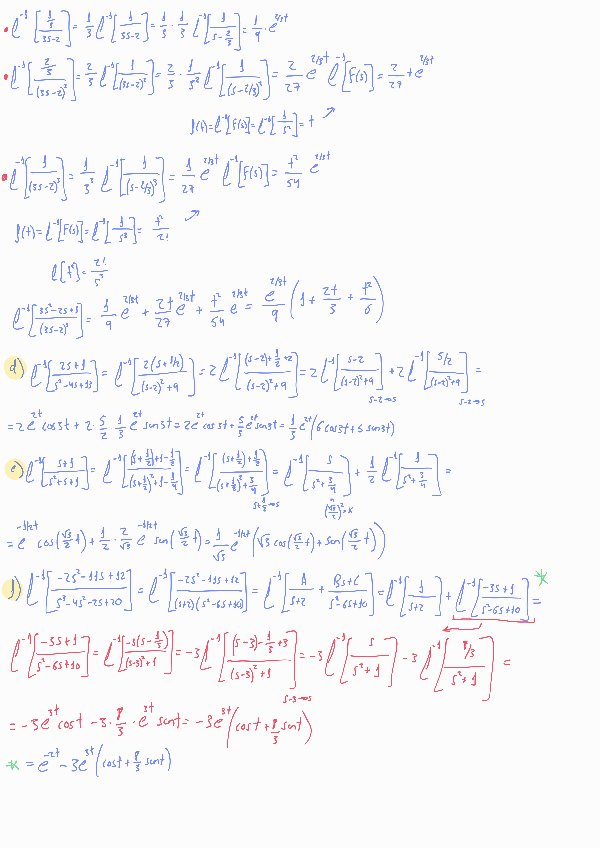 • ℓ⁻¹[(1/3)/(3s-2)] = 1/3 ℓ⁻¹[1/(3s-2)] = 1/3 · 1/3 ℓ⁻¹[1/(s - 2/3)] = 1/9 · e^(2/3t)
• ℓ⁻¹[(2/3)/(3s-2)²] = 2/3 ℓ⁻¹[1/(3s-2)²] = 2/3 · 1/3² ℓ⁻¹[1/(s-2/3)²] = 2/27 e^(2/3t) ℓ⁻¹[F(s)] = 2/27 t e^(2/3t)
f(t) = ℓ⁻¹[F(s)] = ℓ⁻¹[1/s²] = t ↗
• ℓ⁻¹[1/(3s-2)³] = 1/3³ ℓ⁻¹[1/(s-2/3)³] = 1/27 e^(2/3t) ℓ⁻¹[F(s)] = t²/54 e^(2/3t)
f(t) = ℓ⁻¹[F(s)] = ℓ⁻¹[1/s³] = t²/2! ↗
ℓ[t²] = 2!/s³
ℓ⁻¹[(3s²-2s+1)/(3s-2)³] = 1/9 e^(2/3t) + 2t/27 e^(2/3t) + t²/54 e^(2/3t) = e^(2/3t)/9 (1 + 2t/3 + t²/6)
d) ℓ⁻¹[(2s+1)/(s²-4s+13)] = ℓ⁻¹[2(s+1/2)/((s-2)²+9)] = 2ℓ⁻¹[((s-2)+1/2+2)/((s-2)²+9)] = 2ℓ⁻¹[(s-2)/((s-2)²+9)] + 2ℓ⁻¹[(5/2)/((s-2)²+9)] =
s-2→s s-2→s
= 2e^(2t) cos3t + 2 · 5/2 · 1/3 e^(2t) sen3t = 2e^(2t) cos3t + 5/3 e^(2t) sen3t = 1/3 e^(2t) (6cos3t + 5sen3t)
e) ℓ⁻¹[(s+1)/(s²+s+1)] = ℓ⁻¹[((s+1/2)+1-1/2)/((s+1/2)²+1-1/4)] = ℓ⁻¹[((s+1/2)+1/2)/((s+1/2)²+3/4)] = ℓ⁻¹[s/(s²+3/4)] + 1/2 ℓ⁻¹[1/(s²+3/4)] =
s+1/2→s
= e^(-1/2t) cos(√3/2 t) + 1/2 · 2/√3 e^(-1/2t) sen(√3/2 t) = 1/√3 e^(-1/2t) (√3 cos(√3/2 t) + sen(√3/2 t))
f) ℓ⁻¹[(-2s²-11s+12)/(s³-4s²-2s+20)] = ℓ⁻¹[(-2s²-11s+12)/((s+2)(s²-6s+10))] = ℓ⁻¹[A/(s+2) + (Bs+C)/(s²-6s+10)] = ℓ⁻¹[1/(s+2)] + ℓ⁻¹[(-3s+1)/(s²-6s+10)] = *
ℓ⁻¹[(-3s+1)/(s²-6s+10)] = ℓ⁻¹[-3(s-1/3)/((s-3)²+1)] = -3ℓ⁻¹[((s-3)-1/3+3)/((s-3)²+1)] = -3ℓ⁻¹[s/(s²+1)] - 3ℓ⁻¹[(8/3)/(s²+1)] =
s-3→s
= -3e^(3t) cost - 3 · 8/3 · e^(3t) sent = -3e^(3t) (cost + 8/3 sent)
* = e^(-2t) - 3e^(3t) (cost + 8/3 sent)